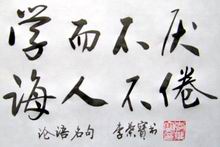 学而不厌
诲人不倦
论语名句 李荣宝书